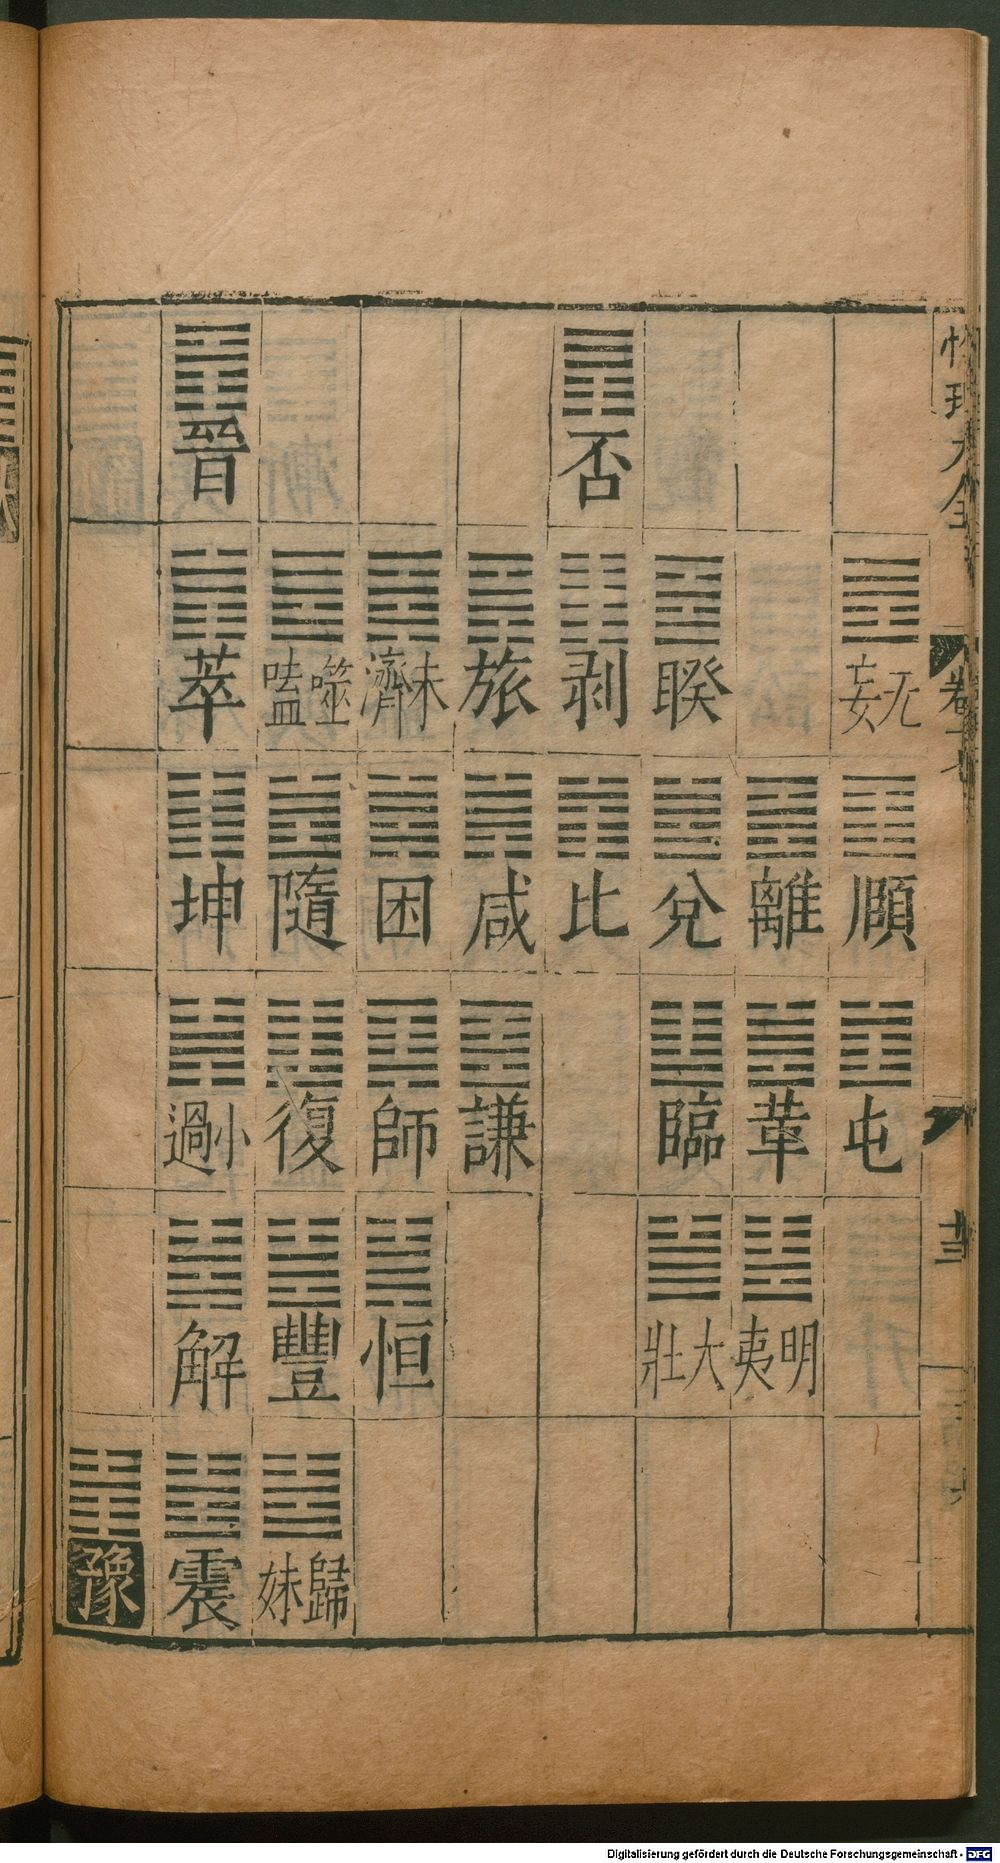 性理大全
卷十
廿三
无妄
頤
屯
離
革
明夷
睽
兌
臨
大壯
否
剥
比
旅
咸
謙
未濟
困
師
恒
噬嗑
隨
復
豐
歸妹
晉
萃
坤
小過
解
震
豫
Digitalisierung gefördert durch die Deutsche Forschungsgemeinschaft - DFG